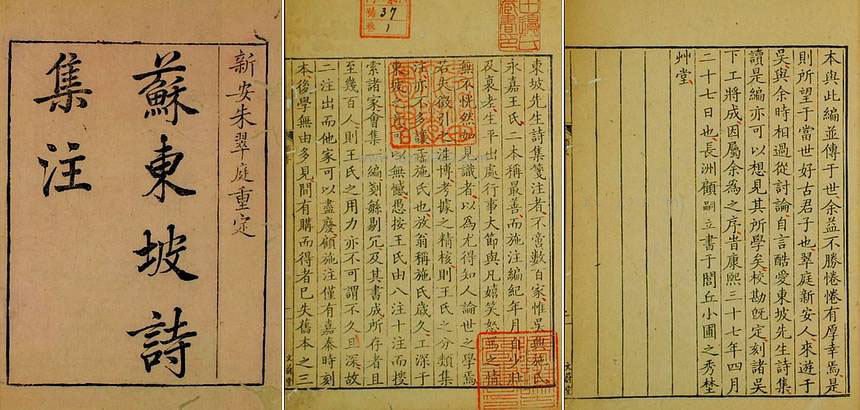 新安朱翠庭重定
蘇東坡詩
集注
37
1
東坡先生詩集箋注者不啻數百家惟吳興施氏
永嘉王氏二本稱最善而施注編紀年月自少壯
及衰老生平出處行事大節與凡嬉笑怒罵之情
無不恍然如見識者以為尤得知人論世之學焉
若夫徵引之博考據之精核則王氏之分類集
注亦不多讓施氏也放翁稱施氏歲久工深于
東坡之意可以無憾愚按王氏由八注十注而搜
索諸家會集一編剗繇剔冗及其書成所存者且
至幾百人則王氏之用力亦不可謂不久且深故
二注出而他家可以盡廢顧施注僅有嘉泰時刻
本後學無由多見間有購而得者已失舊本之三
本與此編並傳于世余益不勝惓惓有厚幸焉是
則所望于當世好古君子也翠庭新安人來遊于
吳與余時相過從討論自言酷愛東坡先生詩集
讀是編亦可以想見其所學矣校勘既定刻諸吳
下工將成因屬余為之序旹康熙三十七年四月
二十七日也長洲顧嗣立書于閭丘小圃之秀埜
艸堂